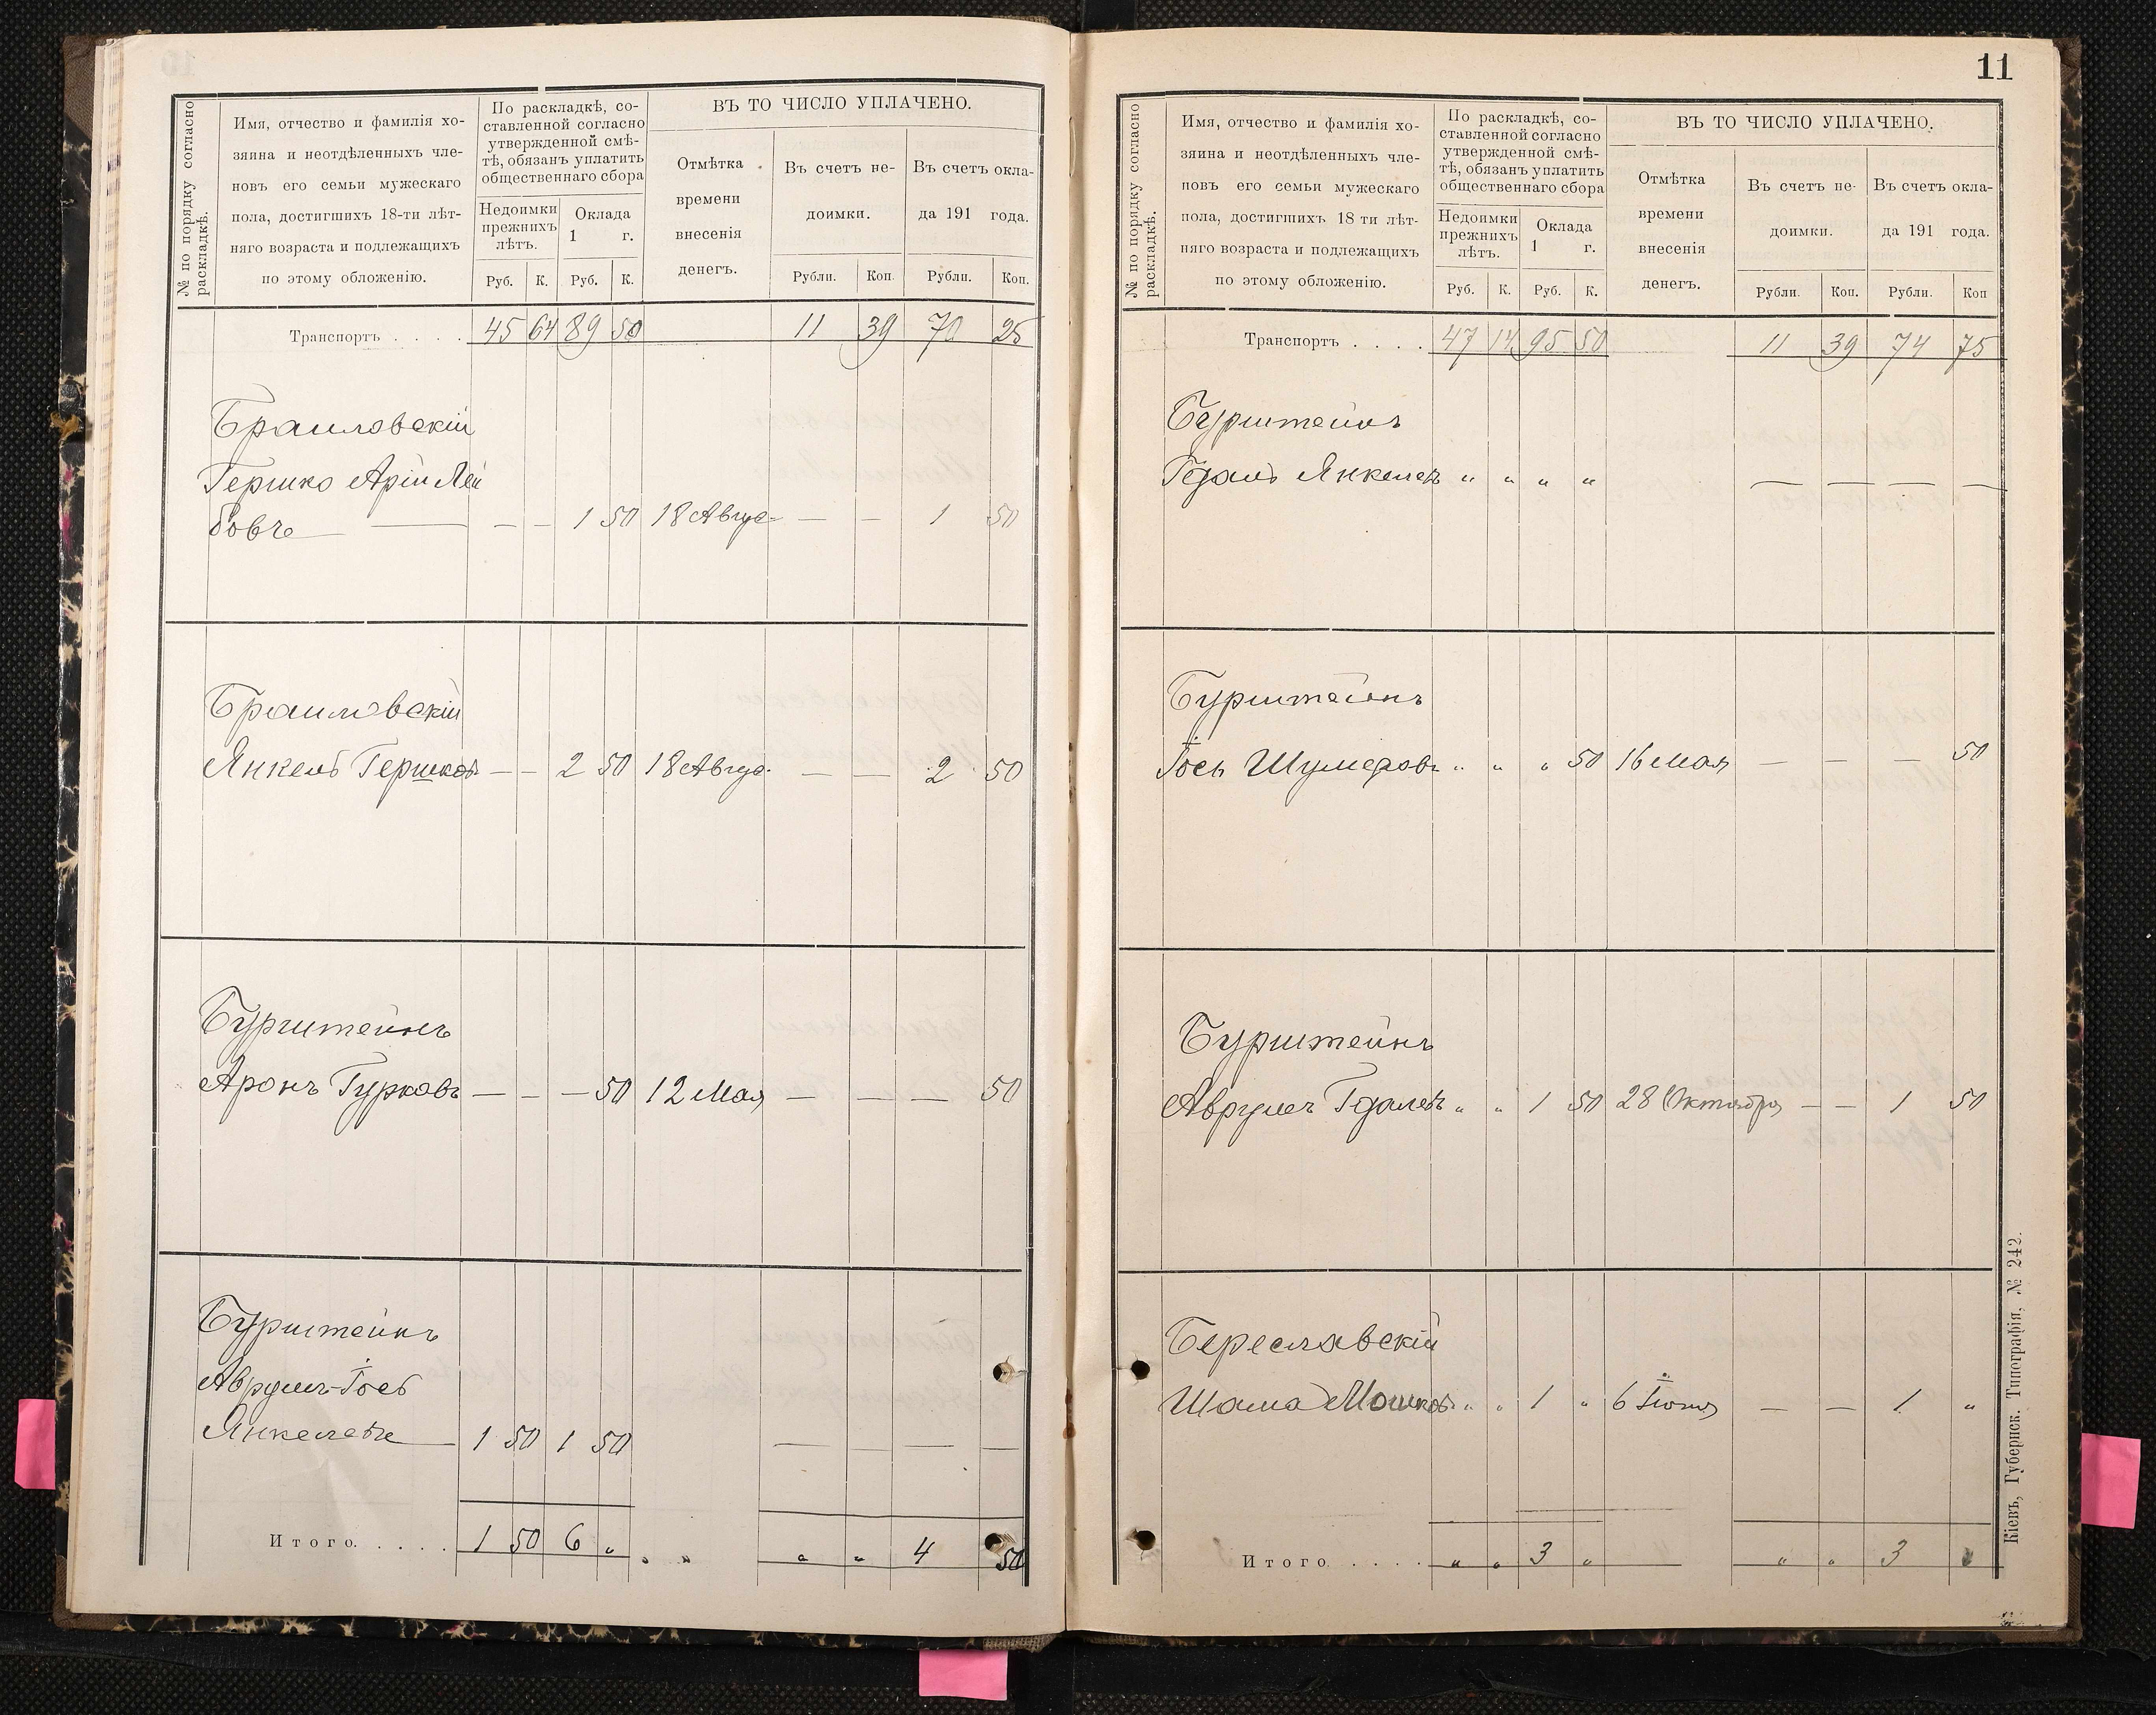 № по порядку согласно
раскладкѣ.
Имя, отчество и фамилія хо-
зяина и неотдѣленныхъ чле-
новъ его семьи мужескаго
пола, достигшихъ 18-ти лѣт-
няго возраста и подлежащихъ
по этому обложенію.
По раскладкѣ, со-
ставленной согласно
утвержденной смѣ-
тѣ, обязанъ уплатить
общественнаго сбора
Недоимки
прежнихъ
лѣтъ.
Оклада
1 г.
Руб. К. Руб. К.
ВЪ ТО ЧИСЛО УПЛАЧЕНО.
Отмѣтка
времени
внесенія
денегъ.
Въ счетъ не-
доимки.
Въ счетъ окла-
да 191 года.
Рубли. Коп. Рубли. Коп.
Транспортъ . . . . 45 64 89 50 11 39 70 25
Браиловскій
Гершко Арій Лей
бовъ — — — 1 50 18 Авгус- — — 1 50
Браиловскій
Янкель Гершков. — — 2 50 18 Авгус. — — 2 50
Бурштейнъ
Аронъ Гурковъ — — — 50 12 Мая — — — 50
Бурштейнъ
Аврумъ-Іось
Янкелевъ 1 50 1 50 — — — —
Итого. . . . . 1 50 6 „ „ „ „ „ 4 50
11
№ по порядку согласно
раскладкѣ.
Имя, отчество и фамилія хо-
зяина и неотдѣленныхъ чле-
новъ его семьи мужескаго
пола, достигшихъ 18 ти лѣт-
няго возраста и подлежащихъ
по этому обложенію.
По раскладкѣ, со-
ставленной согласно
утвержденной смѣ-
тѣ, обязанъ уплатить
общественнаго сбора
Недоимки
прежнихъ
лѣтъ.
Оклада
1 г.
Руб. К. Руб. К.
ВЪ ТО ЧИСЛО УПЛАЧЕНО.
Отмѣтка
времени
внесенія
денегъ.
Въ счетъ не-
доимки.
Въ счетъ окла-
да 191 года.
Рубли. Коп. Рубли. Коп
Транспортъ . . . . 47 14 95 50 11 39 74 75
Бурштейнъ
Гдаль Янкелев. „ „ „ „ — — — —
Бурштейнъ
Іось Шумеров. „ „ „ 50 16 Мая — — — 50
Бурштейнъ
Аврумъ Гдалев. „ „ 1 50 28 Октября — — 1 50
Береславскій
Шама Мошков. „ „ 1 „ 6 Іюня — — 1 „
Итого. . . . . „ „ 3 „ „ „ 3
Кіевъ, Губернск. Типографія, № 242.